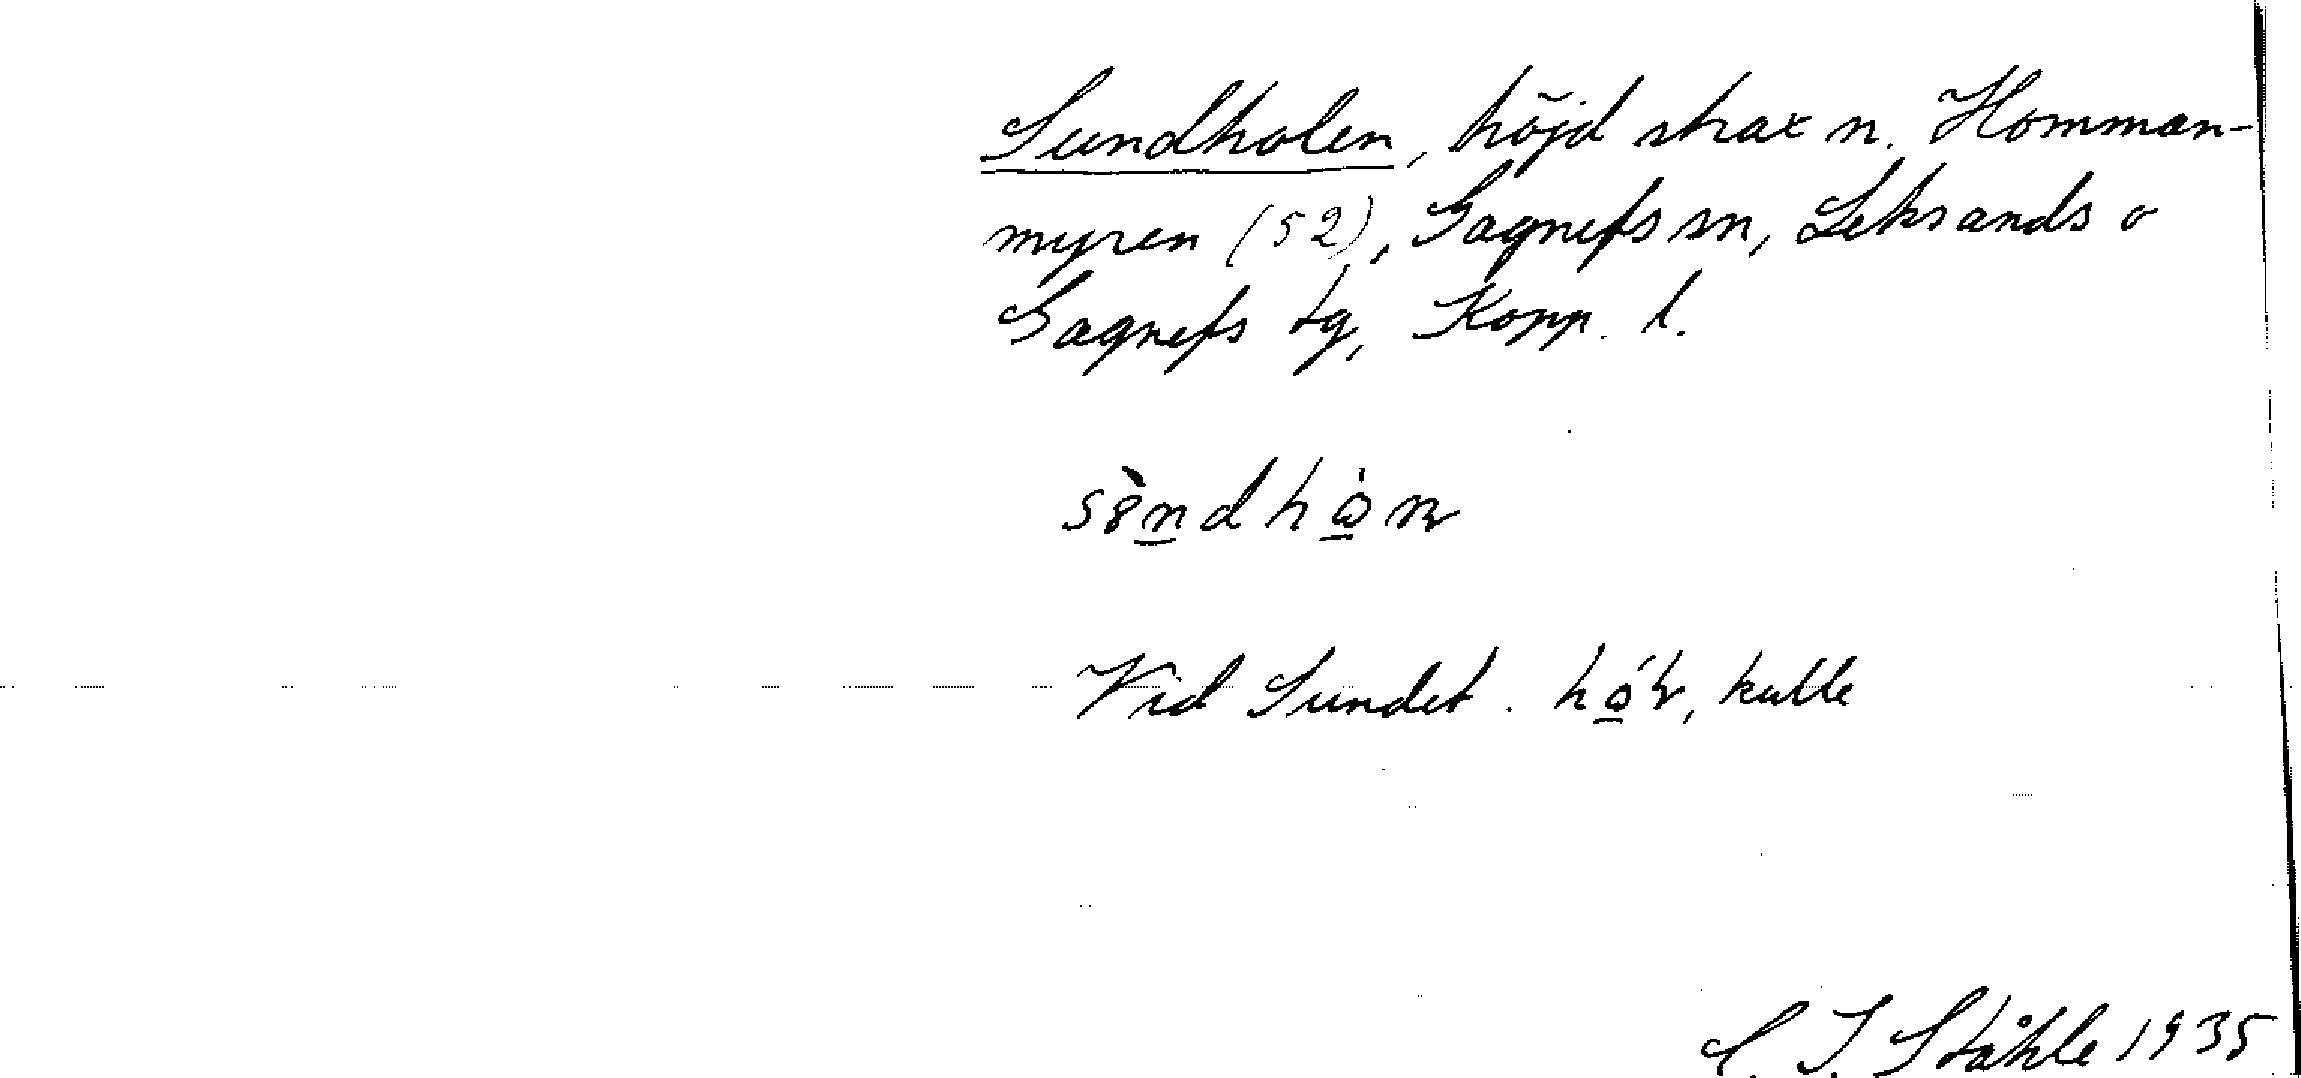 Sundholen, höjd strax n. Homman-
myren (52), Gagnefs sn, Leksands o
Gagnefs tg, Kopp. l.
Vid Sundet. kulle
C. I. Ståhle 1935